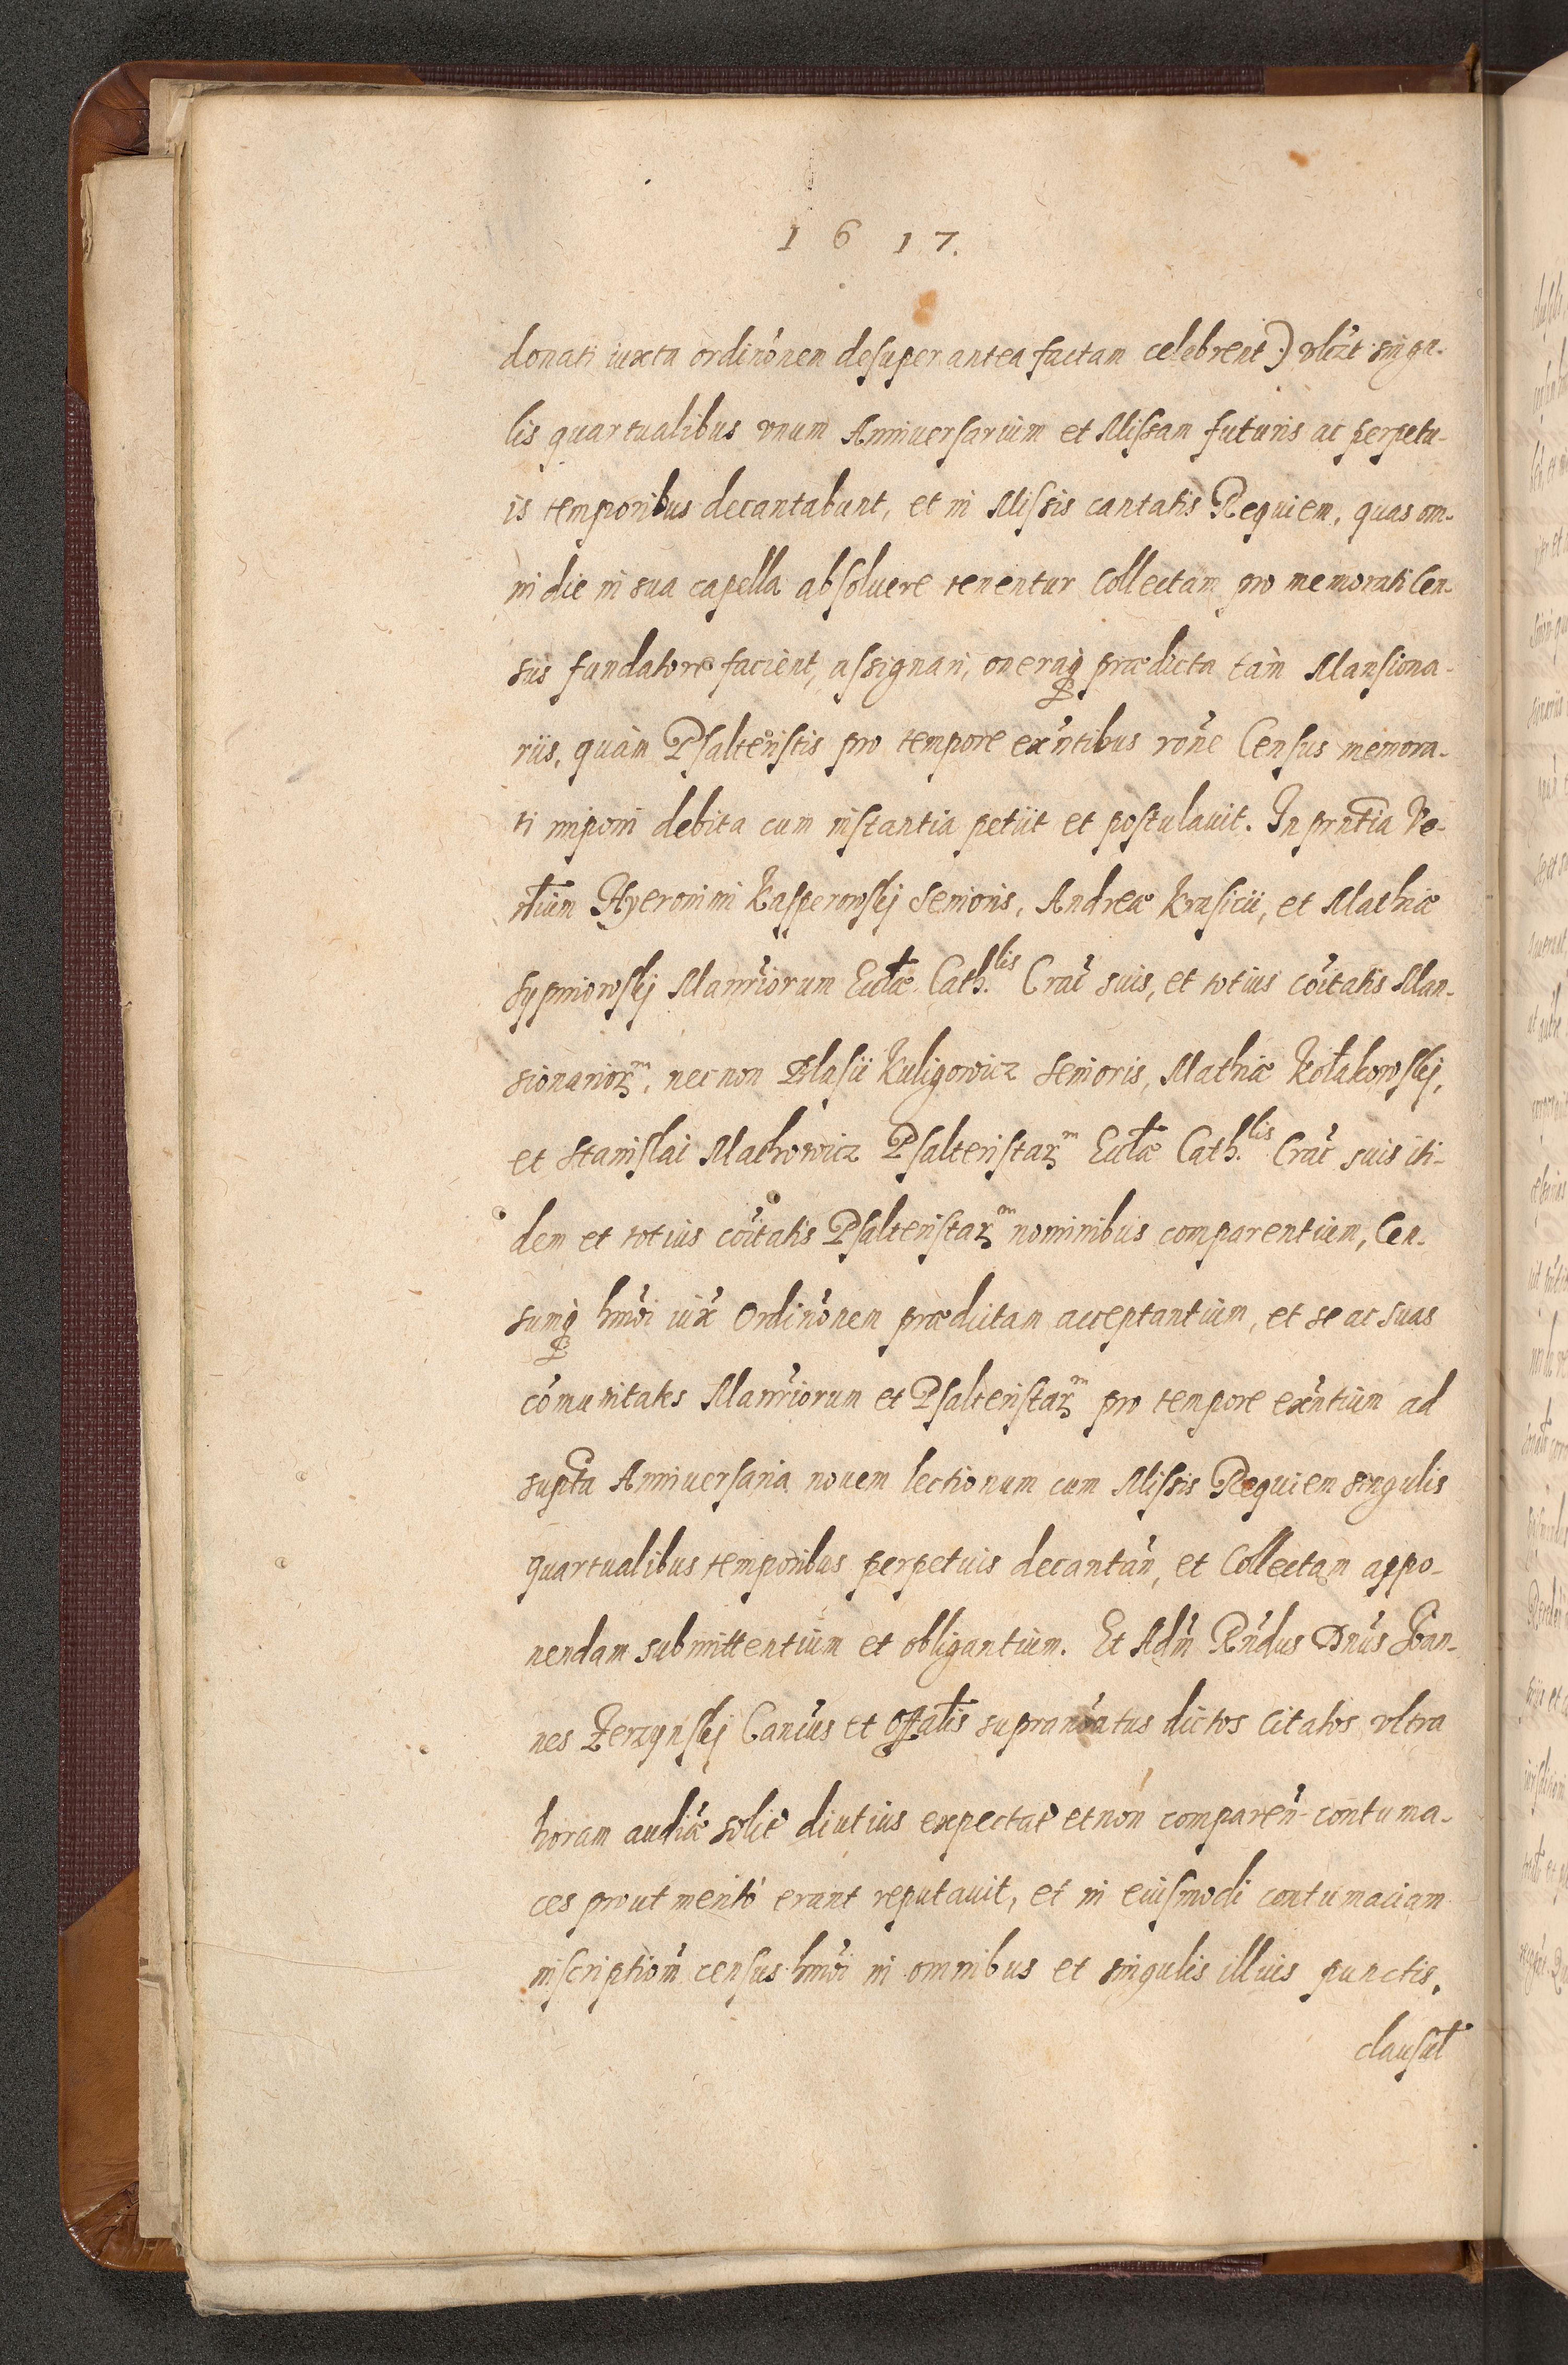 1617.
donati iuxta ordinõnem desuper antea factam celebrent) vlczt singu-
lis quartualibus vnum Anniuersarium et Missam futuris ac perpetu-
is temporibus decantabunt, et in Missis cantatis Requiem, quas om-
ni die in sua capella absoluere tenentur Collectam pro memorati Cen-
sus fundatore facient, assignari, oneraq₃ prædicta tàm Mansiona-
riis, quàm Psalteristis pro tempore exñtibus rõne Census memora-
ti imponi debita cum instantia petiit et postulauit. In prñtia Ve-
nłium Hyeronimi Kasperowskj Senioris, Andreæ Krasicii, et Mathiæ
Sypniowskj Manrĩorum Eccłæ Cath.lis Crac̃ suis, et totius cõitatis Man-
sionarioꝝm, necnon Blasii Kuligowicz Senioris, Mathiæ Kołakowskj,
et Stanislai Machowicz Psalteristaꝝm Eccłæ Cath.lis Crac̃ suis iti-
dem et totius cõitatis Psalteristaꝝm nominibus comparentium, Cen-
sumq₃ hmõi iux̃ Ordinõnem prædictam acceptantium, et se ac suas
cõmunitates Manrĩorum et Psalteristaꝝm pro tempore exñtium ad
supta Anniuersaria nouem lectionum cum Missis Requiem singulis
quartualibus temporibus perpetuis decantañ, et Collectam appo-
nendam submittentium et obligantium. Et Adm̃ Rñdus Dñus Joan-
nes Zerzynskj Canc̃us et Offałis supranõatus dictos Citatos vltra
horam audiæ̃ solit̃ diutius expectat̃ et non compareñ contuma-
ces prout meritò erant reputauit, et in eiusmodi contumaciam
inscriptiom̃ census hmõi in omnibus et singulis illius punctis,
clausuł